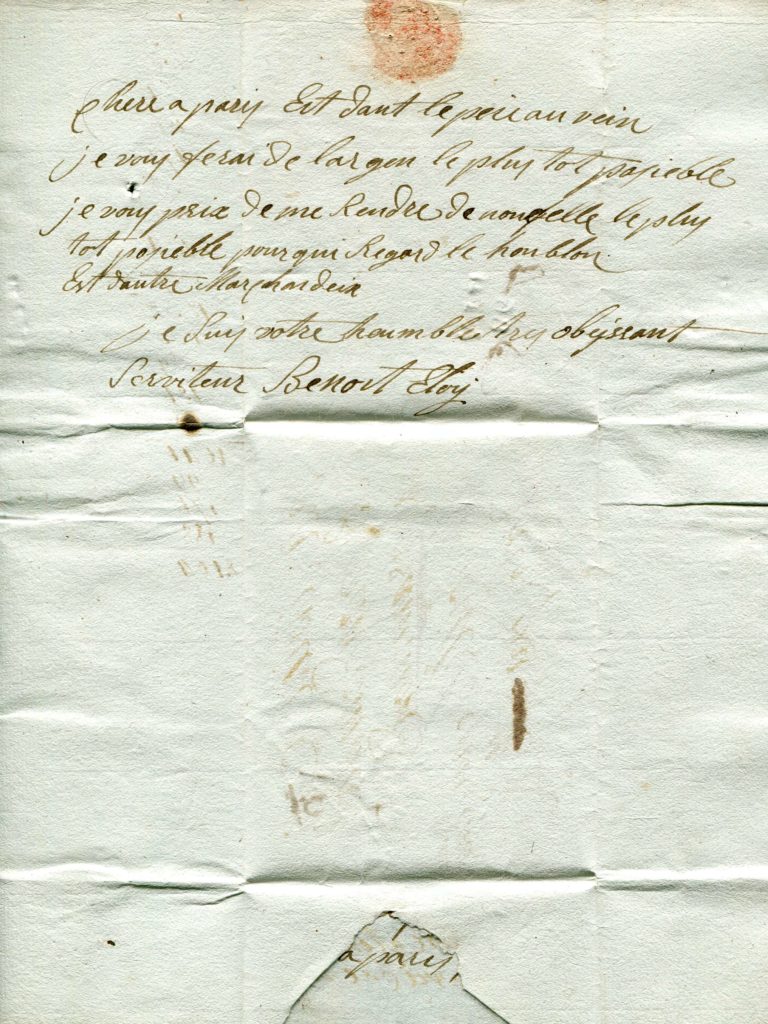 chere a paris Est dant le peii au vein
je vous ferai de largen le plus tot posieble
je vous prix de me Rendre de nouvelle le plus
tot posieble pour qui Regard le houblon
Est dautre Marchandeix
je suis votre houmble trs obeissant
Serviteur Benoit Eloy
a paris,